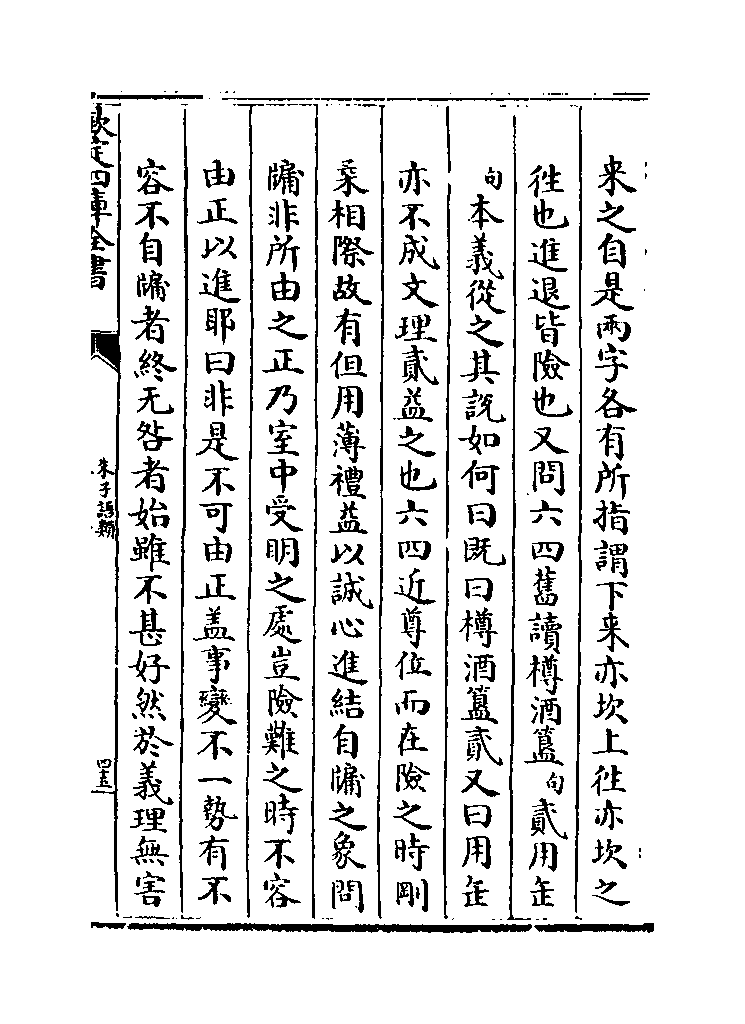 来之自是兩字各有所指謂下来亦坎上徃亦坎之
徃也進退皆險也又問六四舊讀樽酒簋句貳用缶
句本義從之其說如何曰既曰樽酒簋貳又曰用缶
亦不成文理貳益之也六四近尊位而在險之時剛
柔相際故有但用薄禮益以誠心進結自牖之象問
牖非所由之正乃室中受明之處豈險難之時不容
由正以進耶曰非是不可由正盖事變不一勢有不
容不自牖者終无咎者始雖不甚好然於義理無害
欽定四庫全書
朱子語類
四十五